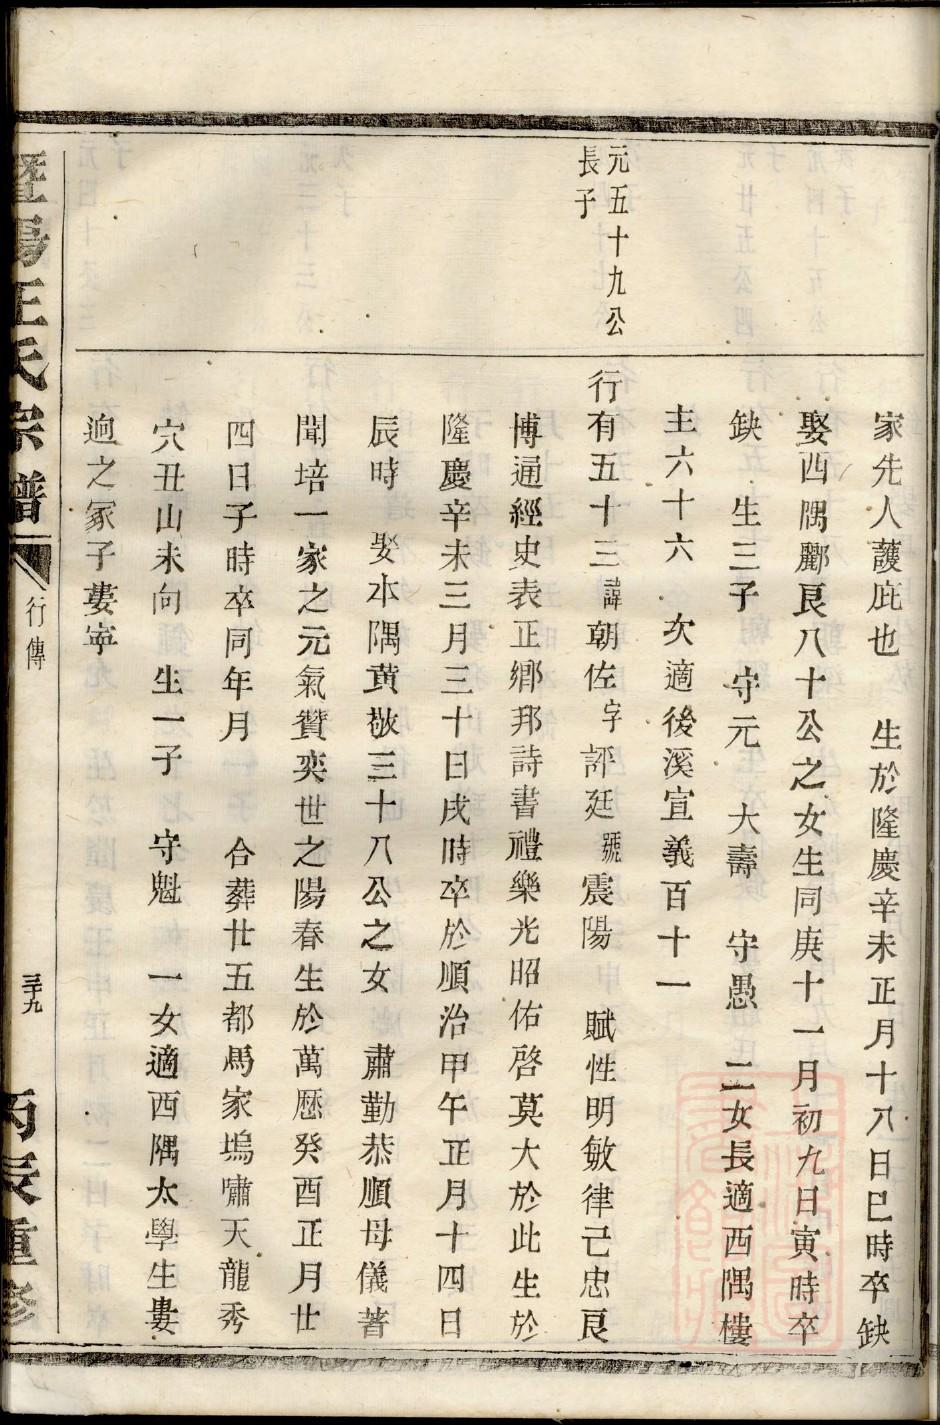 家先人護庇也　生於隆慶辛未正月十八日巳時卒缺
娶西隅酈良八十公之女生同庚十一月初九日寅時卒
缺　生三子　守元　大壽　守愚　二女長適西隅樓
主六十六　次適後溪宣義百十一
元五十九公
長子
行有五十三諱朝佐字評廷號震陽　賦性明敏律己忠良
博通經史表正鄉邦詩書禮樂光昭佑啓莫大於此生於
隆慶辛未三月三十日戌時卒於順治甲午正月十四日
辰時　娶本隅黃敬三十八公之女　肅勤恭順母儀著
聞培一家之元氣贊奕世之陽春生於萬曆癸酉正月廿
四日子時卒同年月　合葬廿五都馬家塢嘯天龍秀
穴丑山未向　生一子　守魁　一女適西隅太學生婁
逈之冡子婁寧
暨陽王氏宗譜
行傳
三十九
丙辰重修